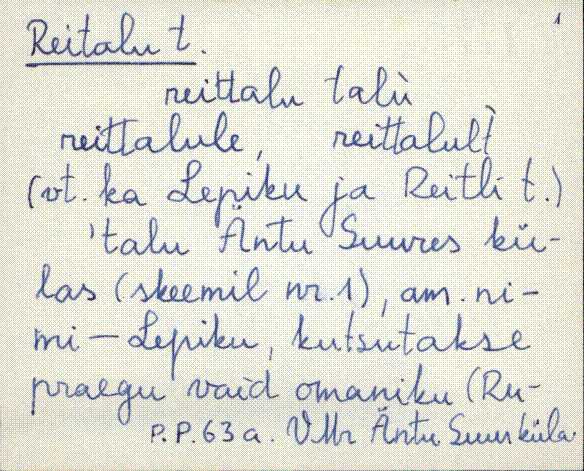 1
Reitalu t.
reittalu talù
reittalule, reittalult̀
(vt. ka Lepiku ja Reitli t.)
'talu Äntu Suures kü-
las (skeemil nr. 1), am. ni-
mi – Lepiku, kutsutakse
praegu vaid omaniku (Ru-
P.P. 63 a. VMr Äntu Suurküla.